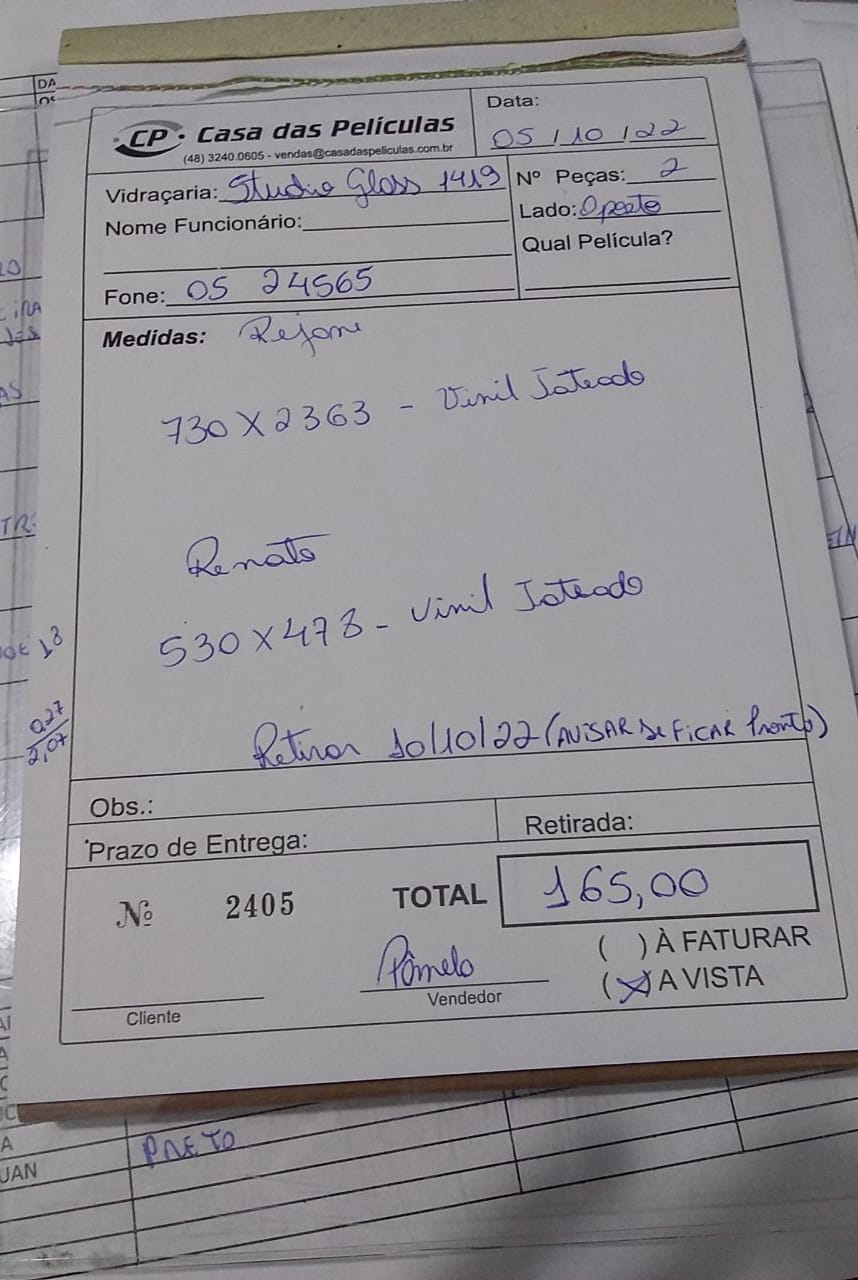 CP · Casa das Películas
(48) 3240.0605 - vendas@casadaspeliculas.com.br
Data:
05 / 10 / 22
Vidraçaria: Studio Glass 1419
Nº Peças: 2
Nome Funcionário:
Lado: Opaco
Qual Película?
Fone: 05 24565
Medidas: Rejane
730 X 2363 - Vinil Jateado
Renato
530 X 478 - Vinil Jateado
Retirar 10/10/22 (AVISAR se FICAR Pronto)
Obs.:
Prazo de Entrega:
Retirada:
Nº 2405
TOTAL 165,00
( ) À FATURAR
(X) A VISTA
Pâmela
Vendedor
Cliente
0,27
2,07
PRETO
UAN